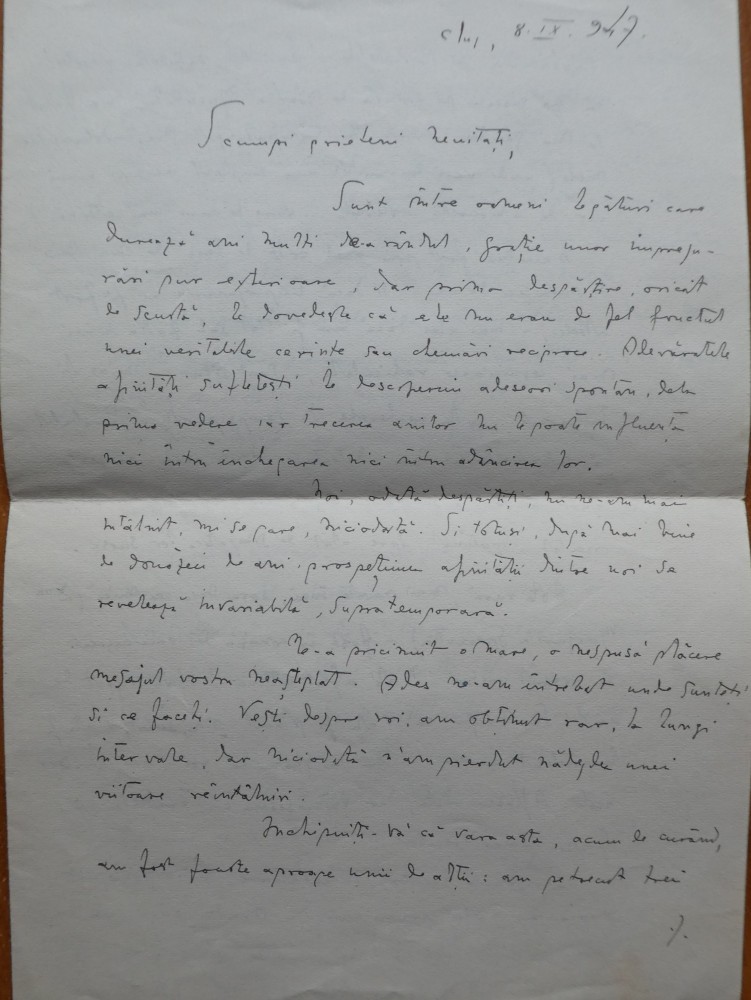 Cluj, 8.IX.947.
Scumpi prieteni neuitați,
Sunt între oameni legături care
durează ani mulți de-a rândul, grație unor împreju-
rări pur exterioare, dar prima despărțire, oricât
de scurtă, le dovedește că ele nu erau de fel fructul
unei veritabile cerințe sau chemări reciproce. Adevăratele
afinități sufletești le descoperim adeseori spontan, dela
prima vedere iar trecerea anilor nu le poate influența
nici întru închegarea nici întru adâncirea lor.
Noi, odată despărțiți, nu ne-am mai
întâlnit, mi se pare, niciodată. Și totuși, după mai bine
de douăzeci de ani, prospețimea afinității dintre noi se
revelează invariabilă, supratemporară.
Ne-a pricinuit o mare, o nespusă plăcere
mesajul vostru neașteptat. Ades ne-am întrebat unde sunteți
și ce faceți. Vești despre voi, am obținut rar, la lungi
intervale, dar niciodată n'am pierdut nădejdea unei
viitoare reîntâlniri.
Închipuiți-vă că vara asta, acum de curând,
am fost foarte aproape unii de alții: am petrecut trei
./.